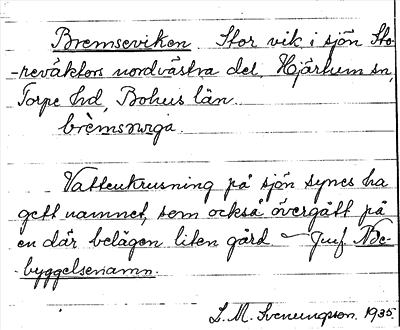 Bremseviken Stor vik i sjön Sto-
-reväktors nordvästra del, Hjärtum sn,
Torpe hd, Bohus län.
brèmsvıga.
Vattenkrusning på sjön synes ha
gett namnet, som också övergått på
en där belägen liten gård — Jmf. Be-
-byggelsenamn.
L. M. Svenungson. 1935.